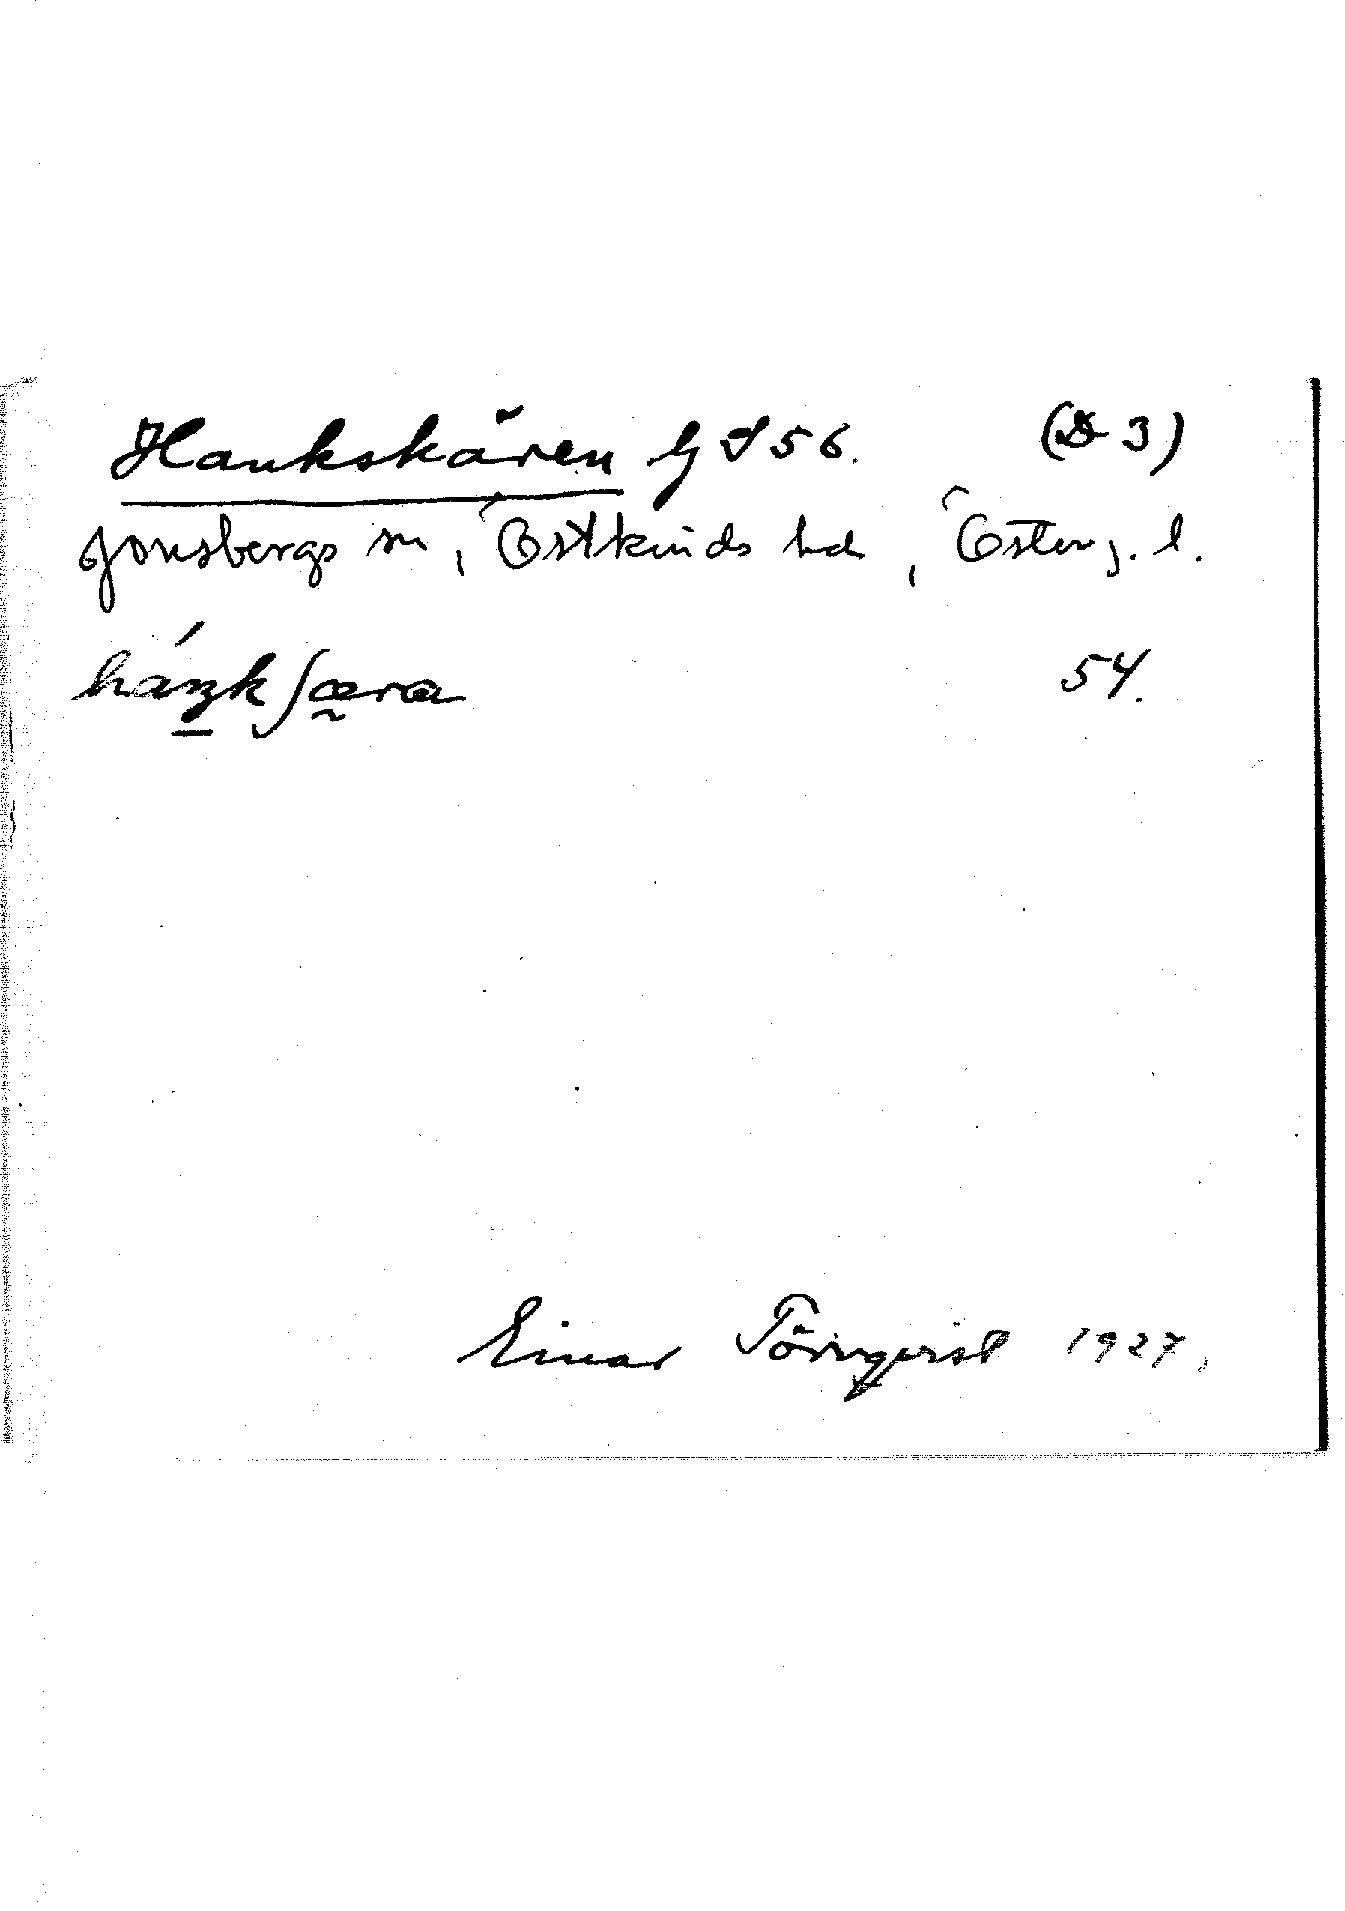 Haukskären G I 56. (D 3)
Jonsbergs sn, Östkinds hd, Österg. l.
54.
Einar Törnqvist 1927.